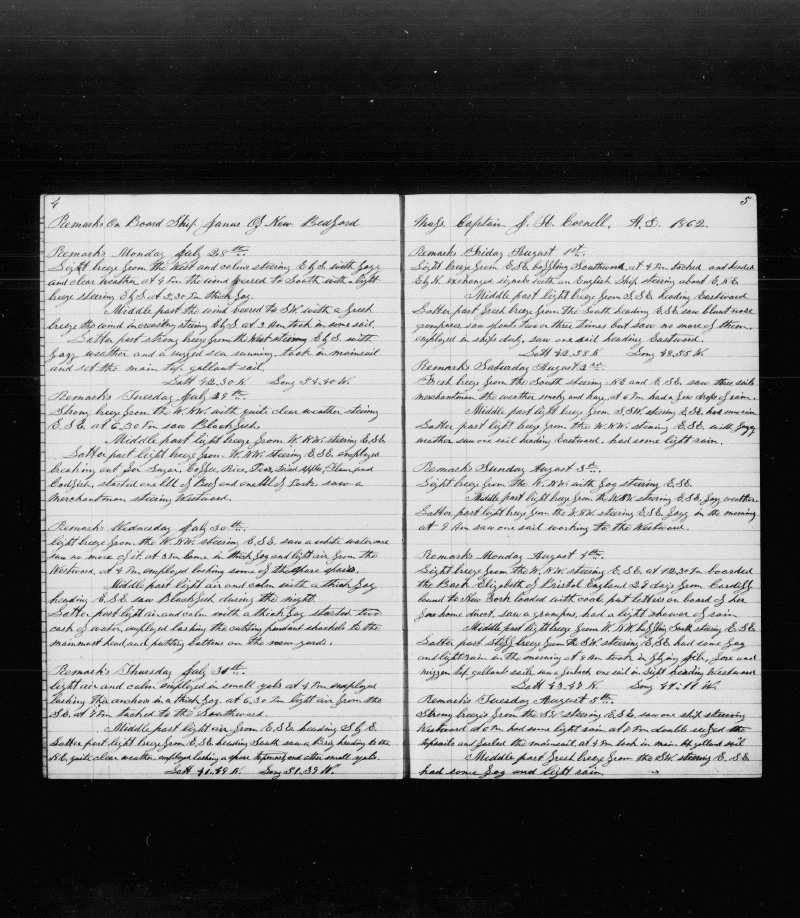 4
Remarks On Board Ship Janus Of New Bedford
Remarks Monday July 28th
Light breeze from the West and calms steering E by S with fogg
and clear weather, at 4 Pm the wind veered to South with a light
breeze steering E by S at 2,30 Pm thick fog.
Middle part the wind veered to SW with a fresh
breeze the wind increasing steering E by S. at 3 Am took in some sail.
Latter part strong breeze from the West steering E by S. with
foggy weather and a rugged sea running, took in mainsail
and set the main top gallant sail,
Latt 42.30 N. Long 54.40 W.
Remarks Tuesday July 29th
Strong breeze from the W.NW. with quite clear weather steering
E.S.E. at 6.30 Pm saw Blackfish.
Middle part light breeze from W.NW. steering E.S.E.
Latter part light breeze from W.NW. steering E.S.E. employed
breaking out for Sugar, Coffee, Rice, Teas, Dried Apples, Flour, and
Codfish, started one bbl of Beef and one bbl of Pork. saw a
Merchantman steering Westward.
Remarks Wednesday July 30th
light breeze from the W.NW. steering E.S.E. saw a white water one
saw no more of it. at 3 Pm came in thick fog and light air from the
Westward, at 4 Pm employed lashing some of the spare spars.
Middle part light air and calm with a thick fog
heading E.S.E. saw Blackfish during the night.
Latter part light air and calm with a thick fog started two
cask of water, employed lashing the cutting pendant shackels to the
mainmast head, and putting battens on the new yards.
Remarks Thursday July 31th
light air and calm employed in small jobs at 4 Pm employed
lashing the anchors in a thick fog. at 6.30 Pm light air from the
S.E. at 7 Pm tacked to the Southward.
Middle part light air from E.S.E heading S by E.
Latter part light breeze from E.S.E. heading South saw a Barq heading to the
N.E, quite clear weather employed lashing a spare topmast, and other small jobs.
Latt 41.49 N. Long 51.39 W.
5
Mass. Captain J. H. Cornell, A.D. 1862.
Remarks Friday August 1st
Light breeze from E.S.E. baffling Southward, at 4 Pm tacked and headed
E by N exchanged signals with an English Ship steering about E.N.E.
Middle part light breeze from S.S.E. heading Eastward
Latter part fresh breeze from the South heading E.S.E. saw blunt nose
grampuses, saw spouts two or three times but saw no more of them,
employed in ships duty, saw one sail heading Eastward.
Latt 42.58 N. Long 49.55 W.
Remarks Saturday August 2nd
Fresh breeze from the South steering N.E. and E.S.E. saw three sails
merchantmen the weather smoky and hazy, at 6 Pm had a few drops of rain.
Middle part light breeze from S,SW. steering E.S.E. had some rain
Latter part light breeze from the W.NW. steering E.S.E. with foggy
weather, saw one sail heading Eastward, had some light rain.
Remarks Sunday August 3th
Light breeze from the W.NW. with fog steering E.S.E.
Middle part light breeze from the W.NW. steering E.S.E, foggy weather
Latter part light breeze from the W.NW steering E.S.E. foggy in the morning
at 9 Am saw one sail working to the Westward.
Remarks Monday August 4th
Light breeze from the W.NW. steering E.S.E. at 12.30 Pm boarded
the Bark Elizabeth of Bristol England 28 days from Cardiff
bound to New York loaded with coal, put letters on board of her
for home direct, saw a grampus, had a light shower of rain
Middle part light breeze from W.NW baffling South steering E.S.E.
Latter part stiff breeze from the SW. steering E.S.E had some fog
and light rain in the morning at 9 Am took in flying jib, fore and
mizzen top gallant sails, saw a finback one sail in sight heading Westward
Latt 43.47 N. Long 47.11 W.
Remarks Tuesday August 5th
Strong breezes from the SW steering E.S.E. saw one ship steering
Westward at 6 Pm had some light rain at 8 Pm double reefed the
topsails and furled the mainsail, at 9 Pm took in main tp gallant sail
Middle part fresh breeze from the SW. steering E.S.E
had some fog and light rain.